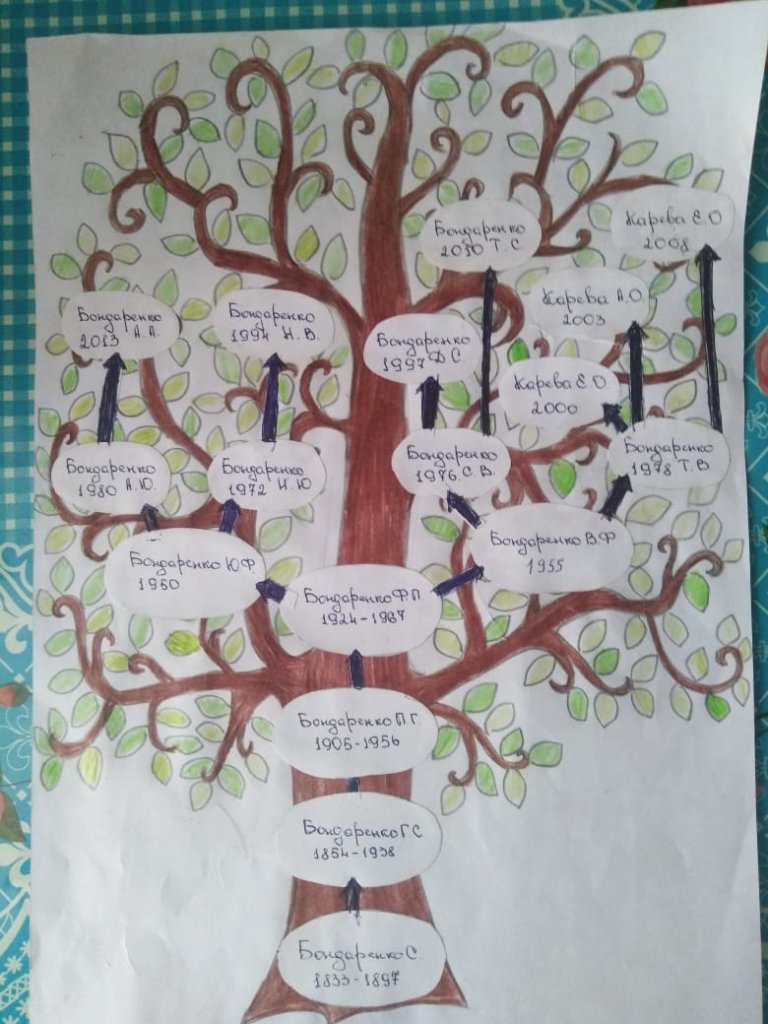 Бондаренко
2010 Т. С.
Карева Е. О
2008
Карева А. О.
2003
Бондаренко
2013 А. А.
Бондаренко
1994 Н. В.
Бондаренко
1997 Д С
Карева Е. О
2000
Бондаренко
1980 А. Ю.
Бондаренко
1972 Н. Ю
Бондаренко
1976 С. В
Бондаренко
1978 Т. В
Бондаренко Ю. Ф
1950
Бондаренко В. Ф
1955
Бондаренко Ф. П
1924-1967
Бондаренко П Г
1905-1956
Бондаренко Г. С
1854-1938
Бондаренко С.
1833-1897